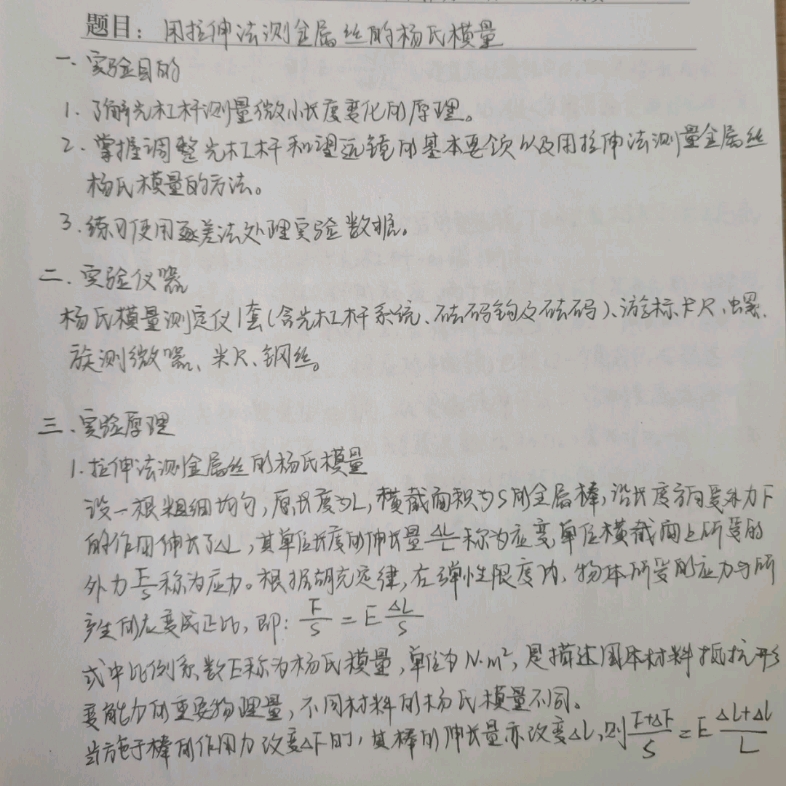 题目：用拉伸法测金属丝的杨氏模量
一、实验目的
1. 了解光杠杆测量微小长度变化的原理。
2. 掌握调整光杠杆和望远镜的基本要领以及用拉伸法测量金属丝
杨氏模量的方法。
3. 练习使用逐差法处理实验数据。
二、实验仪器
杨氏模量测定仪1套(含光杠杆系统、砝码钩及砝码)、游标卡尺、螺
旋测微器、米尺、钢丝。
三、实验原理
1. 拉伸法测金属丝的杨氏模量
设一根粗细均匀，原长度为L，横截面积为S的金属棒，沿长度方向受外力F
的作用伸长了△L，其单位长度的伸长量 △L/L 称为应变，单位横截面上所受的
外力 F/S 称为应力。根据胡克定律，在弹性限度内，物体所受的应力与所
产生的应变成正比，即：F/S = E △L/S
式中比例系数E称为杨氏模量，单位为N·m²，是描述固体材料抵抗形
变能力的重要物理量，不同材料的杨氏模量不同。
当施于棒的作用力改变△F时，其棒的伸长量亦改变△L，则 F+△F/S = E △L+△L/L